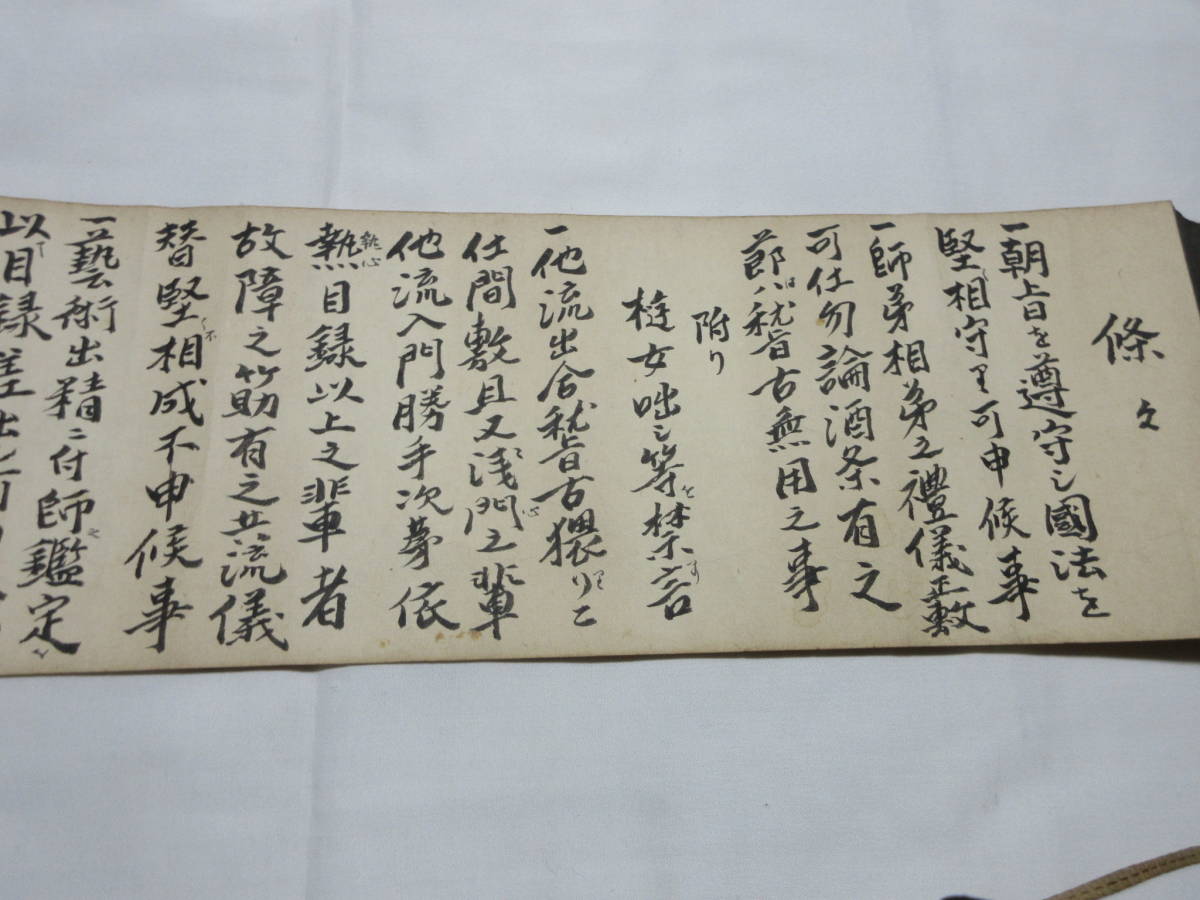 條々
一朝旨を遵守シ國法を
堅ク相守リ可申候事
一師弟相弟之禮儀正敷
可仕勿論酒氣有之
節ハ稽古無用之事
附り
女咄シ等禁言
一他流出合稽古猥リニ
仕間敷且又淺心之輩
他流入門勝手次第
熱目録以上之輩者
故障之筋有之共流儀
替堅ク相成不申候事
一藝術出精ニ付師之鑑定
以テ目録差出